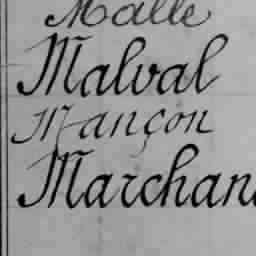 Malle
Malval
Mançon
Marchan